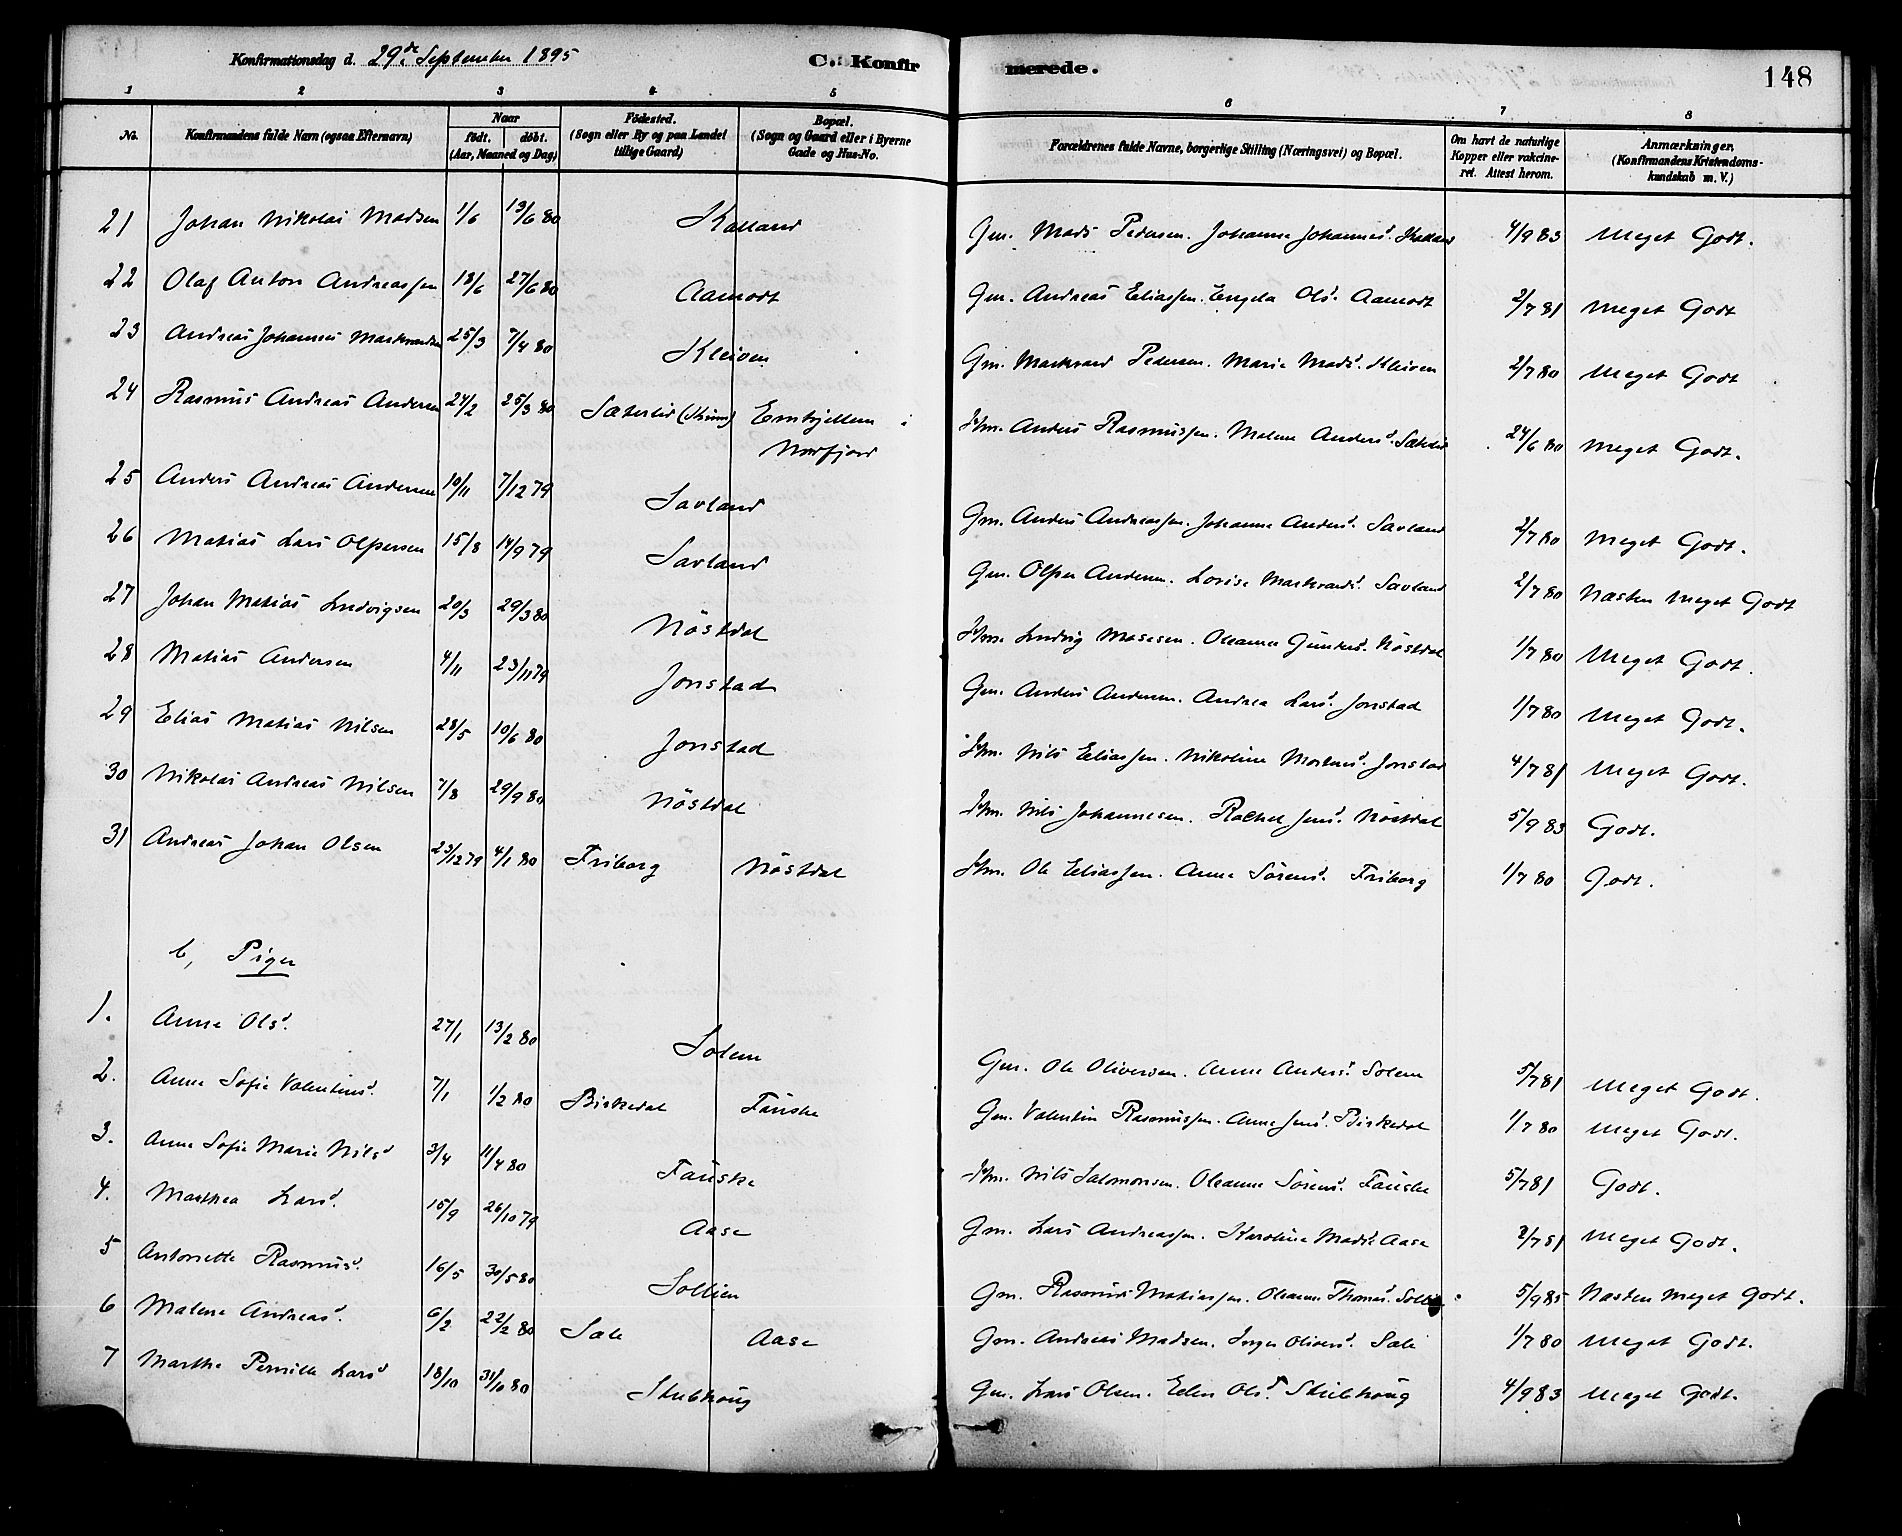 Konfirmationsdag d. 29de September 1895 C. Konfirmerede. 148
1 2 3 4 5 6 7 8
No. Konfirmandens fulde Navn (ogsaa Efternavn) Naar födt. döbt. (Aar, Maaned og Dag) Födested. (Sogn eller By og paa Landet tillige Gaard) Bopæl. (Sogn og Gaard eller i Byerne Gade og Hus-No. Forældrenes fulde Navne, borgerlige Stilling (Næringsvei) og Bopæl. Om havt de naturlige Kopper eller vakcineret. Attest herom. Anmærkninger. (Konfirmandens Kristendomskundskab m. V.)
21 Johan Nikolai Madsen 1/6 13/6 80 Kalland Gm. Mads Pedersen. Johanne Johannesd. Kalland 4/9 83 Meget Godt.
22 Olaf Anton Andreassen 18/6 27/6 80 Aamodt Gm. Andreas Eliassen. Engela Olsd. Aamodt 2/7 81 Meget Godt
23 Andreas Johannes Markvardsen 25/3 7/4 80 Kleiven Gm. Markvard Pedersen. Marie Madsd. Kleiven 2/7 80 Meget Godt
24 Rasmus Andreas Andersen 24/2 25/3 80 Sæterlid (Kinn) Emhjellem i Norfjord Hm. Anders Rasmussen. Malene Andersd. Sæterlid 24/6 80 Meget Godt.
25 Anders Andreas Andersen 10/11 7/12 79 Savland Gm. Anders Andreassen. Johanne Andersd. Savland 2/7 80 Meget Godt.
26 Matias Lars Olfsersen 15/8 14/9 79 Savland Gm. Olfser Andersen. Lovise Markvardsd. Savland 2/7 80 Næsten Meget Godt
27 Johan Matias Ludvigsen 20/3 29/3 80 Nöstdal Hm. Ludvig Mosesen. Oleanne Gundersd. Nöstdal 1/7 80 Meget Godt.
28 Matias Andersen 4/11 23/11 79 Jonstad Gm. Anders Andersen. Andrea Larsd. Jonstad 1/7 80 Meget Godt.
29 Elias Matias Nilsen 28/5 10/6 80 Jonstad Hm. Nils Eliassen. Nikoline Mortensd. Jonstad 4/7 81 Meget Godt.
30 Nikolai Andreas Nilsen 7/8 29/9 80 Nöstdal Hm. Nils Johannesen. Rachel Jensd. Nöstdal 5/9 83 Godt.
31 Andreas Johan Olsen 23/12 79 4/1 80 Friborg Nöstdal Hm. Ole Eliassen. Anne Sörensd. Friborg 1/7 80 Godt.
b, Piger
1. Anne Olsd. 27/1 13/2 80 Solem Gm. Ole Oliversen. Anne Andersd. Solem 5/7 81 Meget Godt.
2. Anne Sofie Valentinsd. 7/1 1/2 80 Birkedal Fauske Gm. Valentin Rasmussen. Anne Jensd. Birkedal 1/7 80 Meget Godt.
3. Anne Sofie Marie Nilsd 3/4 11/4 80 Fauske Hm. Nils Salomonsen. Oleanne Sörensd. Fauske 5/7 81 Godt.
4. Marthea Larsd. 15/9 26/10 79 Aase Gm. Lars Andreassen. Karoline Madsd. Aase 2/7 81 Meget Godt.
5 Antonette Rasmusd. 16/5 30/5 80 Sollien Gm. Rasmus Matiassen. Oleanne Thomasd. Sollien 5/9 85 Næsten Meget Godt.
6 Malene Andreasd. 6/2 22/2 80 Sæle Aase Gm. Andreas Madsen. Inger Oliversd. Sæle 1/7 80 Meget Godt.
7 Marthe Pernille Larsd 18/10 31/10 80 Stubhoug Gm. Lars Olsen. Eelen Olsd. Stubhoug 4/9 83 Meget Godt.